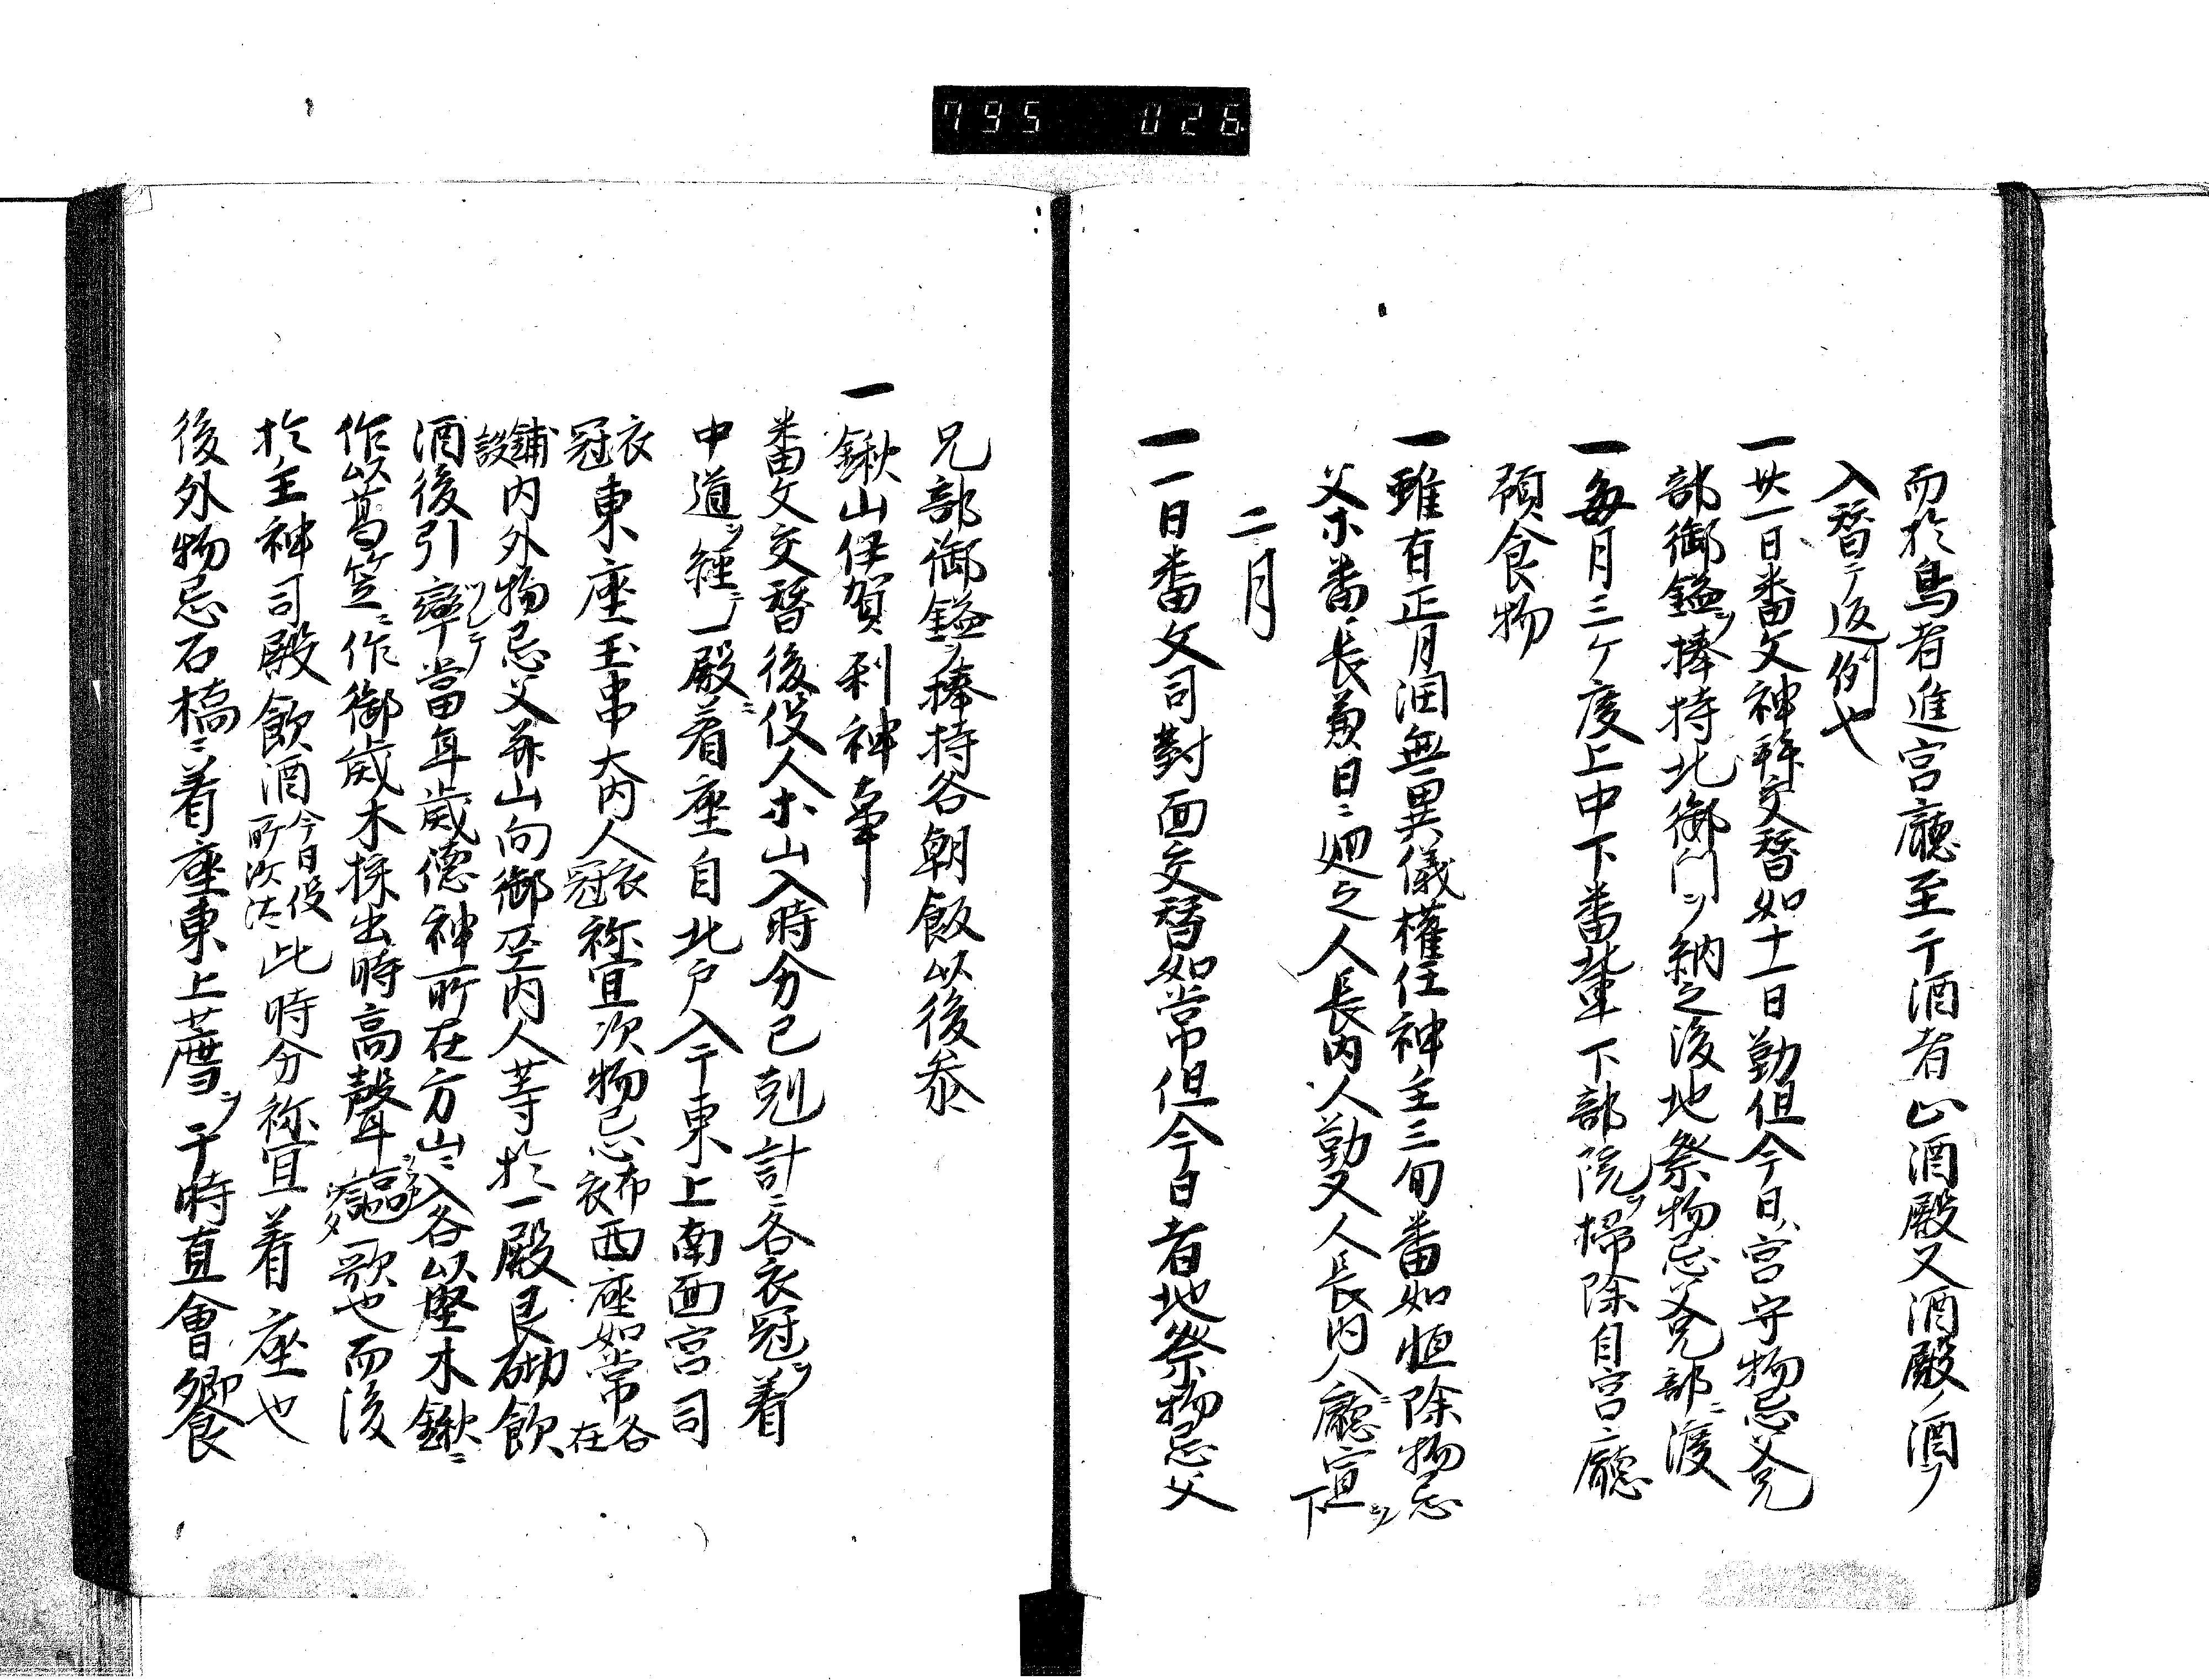 795 026
而於鳥者進宮廳至于酒者止酒殿又酒殿ノ酒ノ
入替ニノ返例也
一廿一日番文神拜交替如十一日勤但今日ハ宮守物忌父兄
部御鎰ヲ捧持北御門ヲ納之後地祭物忌父兄部ニ渡
一毎月三ケ度上中下番輩下部院ヲ掃除自宮廳
預食物
一雖有正月閏無異儀權任神主三旬番如恒除物忌
父ホ番長兼日ニ廻之人長内人勤又人長内人ニ廳宣ヲ下
二月
一一日番文司對面交替如常但今日者地祭物忌父
兄部御鎰ヲ捧持各朝飯以後参
一鍬山伊賀利神事
番文交替後役人ホ山入時分巳剋計ニ各衣冠ヲ着
中道ヲ經テ一殿ニ着座自北戸入テ東上南面宮司
衣冠東座玉串大内人衣冠祢宜次物忌布衣西座如常各在
鋪設内外物忌父并山向御巫内人等於一殿艮砌飲
酒後引率シテ當年歳德神所在方山ニ入各以堅木鍬ニ
作以葛笠ニ作御歳木採出時高聲謳歌也而後
於主神司殿飲酒今日役所汰此時分祢宜着座也
後外物忌石橋ニ着座東上薦ヲ于時直會饗